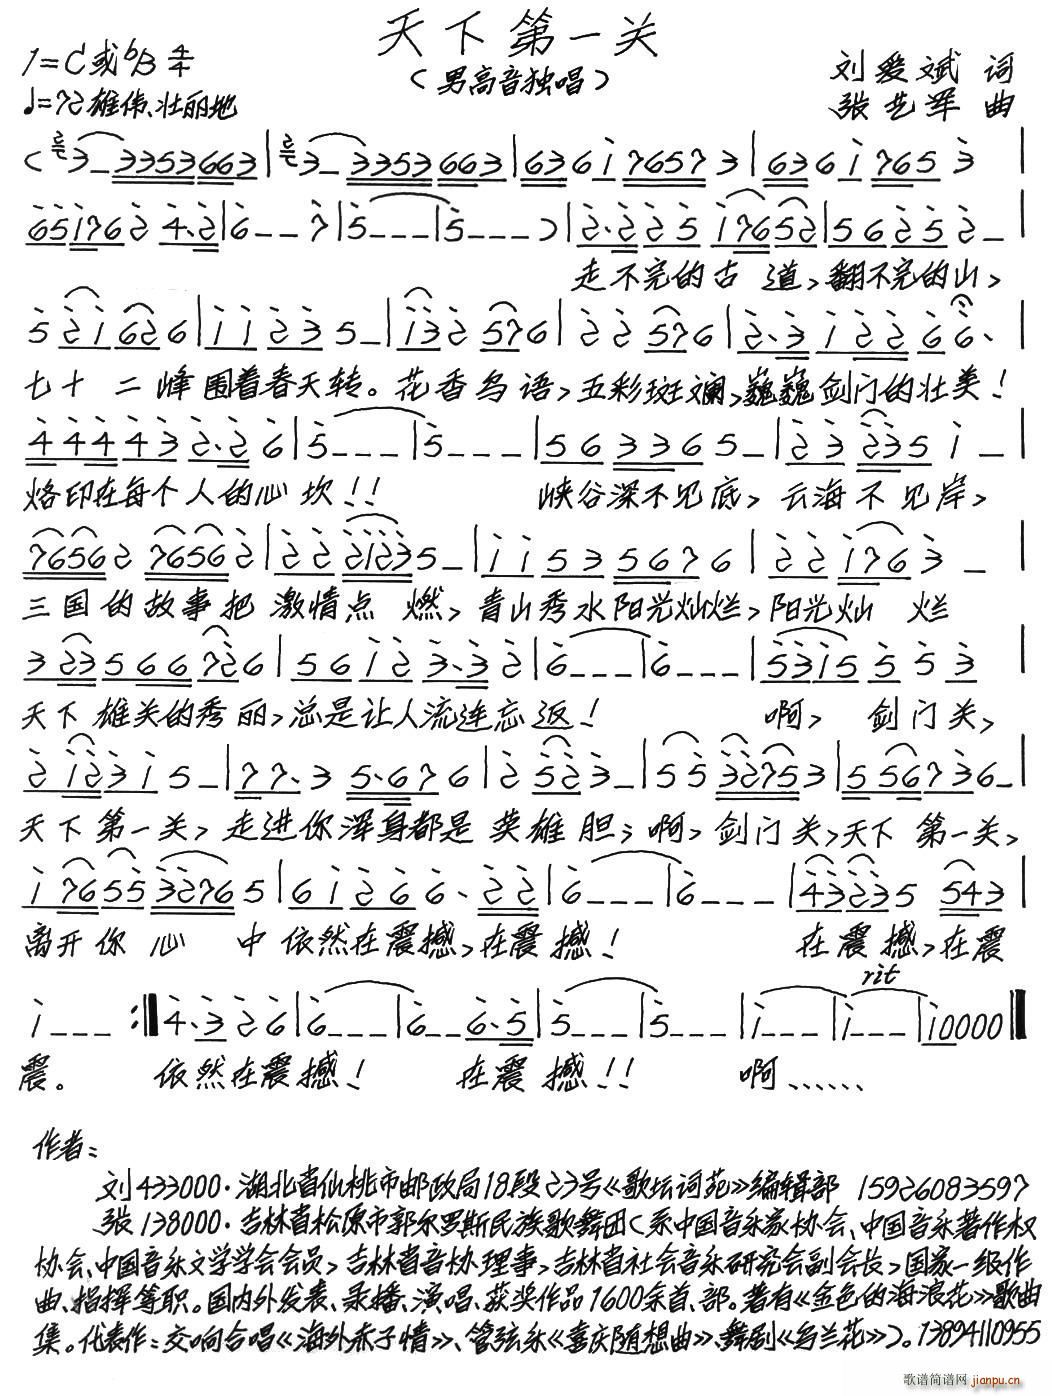 天下第一关
1=C或bB 4/4
(男高音独唱)
刘爱斌 词
♩=72 雄伟、壮丽地
张艺军 曲
走不完的古 道, 翻不完的山,
七十 二峰围着春天转。花香鸟语, 五彩斑斓, 巍巍剑门的壮美!
烙印在每个人的心坎!! 峡谷深不见底, 云海不见岸,
三国的故事把 激情点 燃, 青山秀水阳光灿烂, 阳光灿 烂
天下 雄关的秀丽, 总是让人流连忘返! 啊, 剑门关,
天下第一关, 走进你浑身都是 英雄胆; 啊, 剑门关, 天下 第一关,
离开你 心 中 依然在震撼, 在震撼! 在震撼, 在震
rit
震。 依然在震撼! 在震撼!! 啊……
作者:
刘433000·湖北省仙桃市邮政局18段23号《歌坛词苑》编辑部 15926083597
张138000·吉林省松原市郭尔罗斯民族歌舞团(系中国音乐家协会、中国音乐著作权
协会、中国音乐文学学会会员, 吉林省音协理事, 吉林省社会音乐研究会副会长, 国家一级作
曲、指挥等职。国内外发表、录播、演唱、获奖作品1600余首、部。著有《金色的海浪花》歌曲
集。代表作: 交响合唱《海外赤子情》、管弦乐《喜庆随想曲》、舞剧《乌兰花》)。13894110955
歌谱简谱网
jianpu.cn